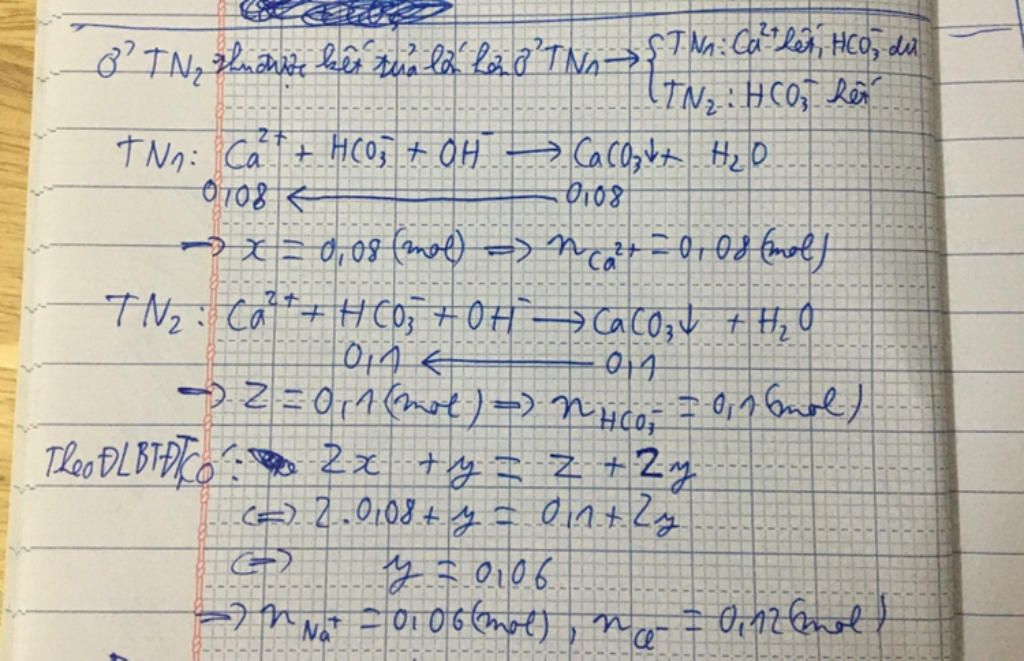 Ở TN₂ thu được kết tủa lớn hơn ở TN₁ → { TN₁: Ca²⁺ hết, HCO₃⁻ dư
TN₂: HCO₃⁻ hết
TN₁: Ca²⁺ + HCO₃⁻ + OH⁻ → CaCO₃↓ + H₂O
0,08 ← 0,08
→ x = 0,08 (mol) => n Ca²⁺ = 0,08 (mol)
TN₂: Ca²⁺ + HCO₃⁻ + OH⁻ → CaCO₃↓ + H₂O
0,1 ← 0,1
→ z = 0,1 (mol) => n HCO₃⁻ = 0,1 (mol)
Theo ĐLBTĐT có: 2x + y = z + 2y
<=> 2.0,08 + y = 0,1 + 2y
<=> y = 0,06
=> n Na⁺ = 0,06 (mol), n Cl⁻ = 0,12 (mol)